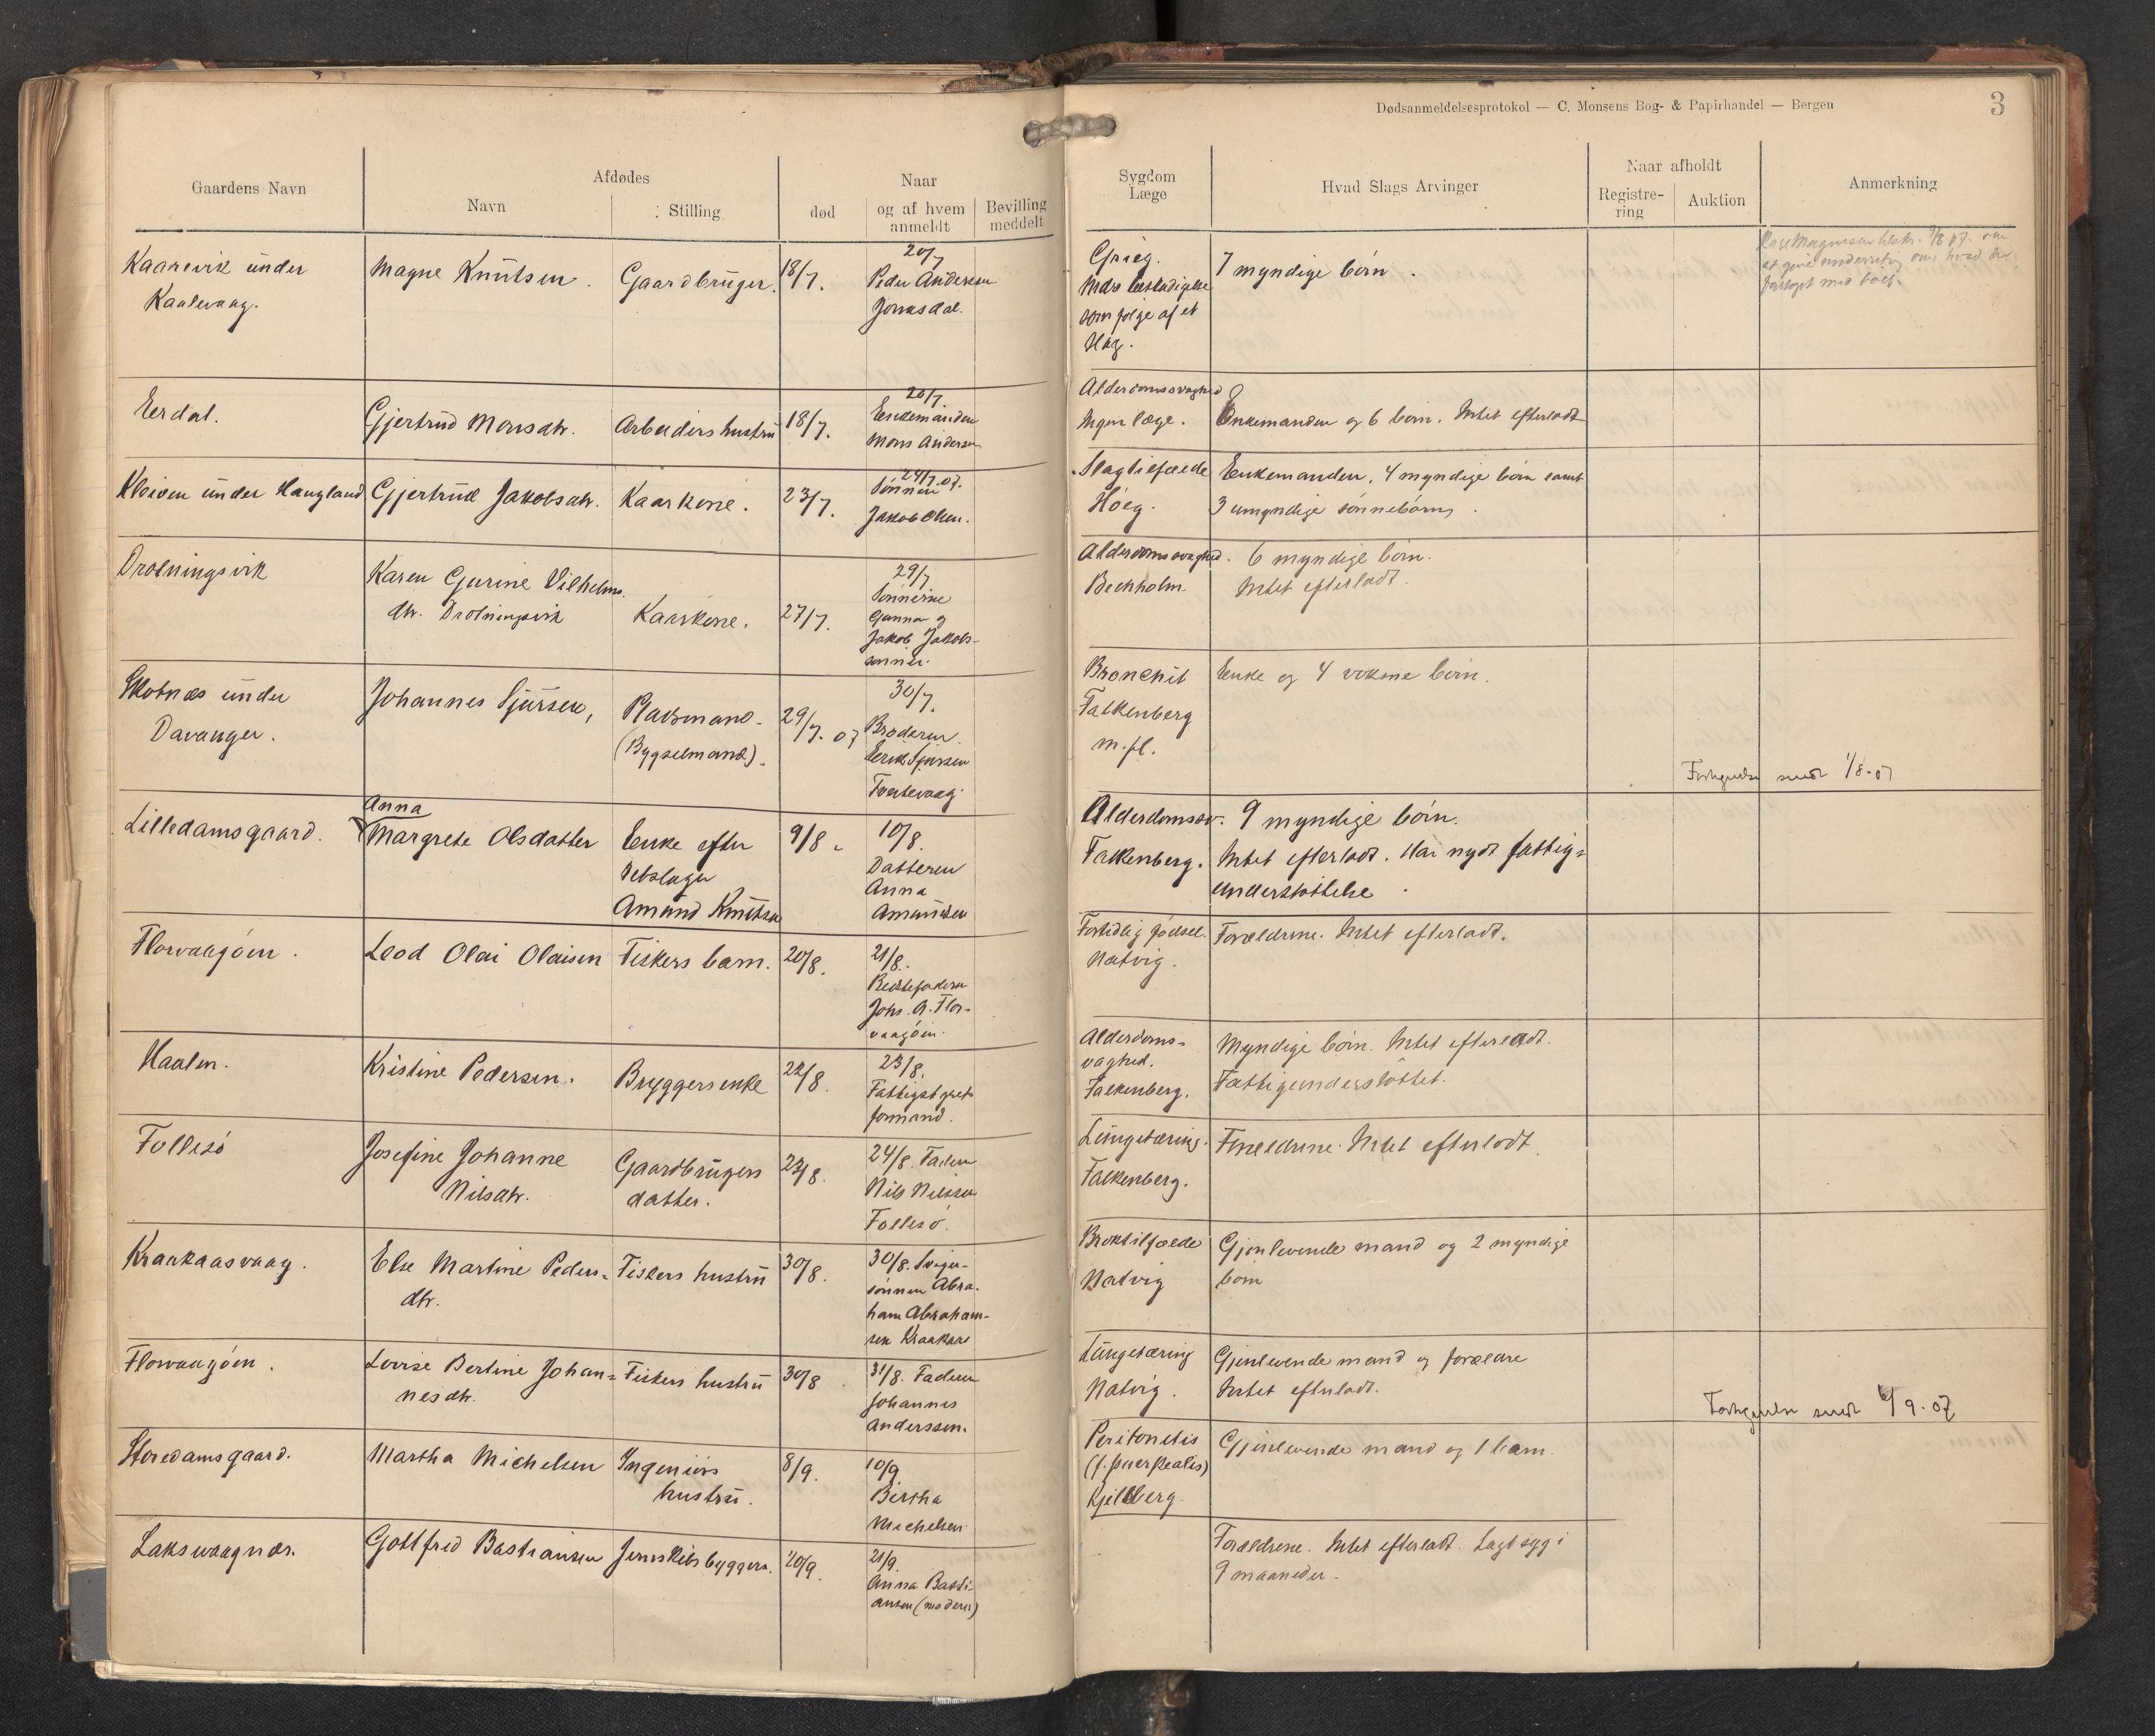 Dødsanmeldelsesprotokol — C. Monsens Bog- & Papirhandel — Bergen
3
Gaardens Navn
Afdødes
Navn
Stilling
død
Naar
og af hvem
anmeldt
Bevilling
meddelt
Sygdom
Læge
Hvad Slags Arvinger
Naar afholdt
Registre-
ring
Auktion
Anmerkning
Kaarevik under
Kaalevaag.
Magne Knutsen.
Gaardbruger.
18/7.
20/7
Peder Andersen
Jonasdal.
Grieg.
Indre beskadigelse
som følge af et
slag.
7 myndige børn.
Eerdal.
Gjertrud Monsdtr.
Arbeiders hustru
18/7.
20/7.
Enkemanden
Mons Andersen
Alderdomssvaghed
Ingen læge.
Enkemanden og 6 børn. Intet efterladt
Kleiven under Haugland
Gjertrud Jakobsdtr.
Kaarkone.
23/7.
24/7.07.
Sønnen
Jakob Olsen.
Slagtilfælde
Høeg.
Enkemanden, 4 myndige børn samt
3 umyndige sønnebørn.
Drotningsvik
Karen Gurine Vilhelms
dtr. Drotningsvik
Kaarkone.
27/7.
29/7
Sønnerne
Gunna og
Jakob Jakobs-
sønner.
Alderdomssvaghed.
Bechholm.
6 myndige børn.
Intet efterladt.
Skotnes under
Davanger.
Johannes Sjursen,
Pladsmand.
(Bygselmand).
29/7. 07
30/7.
Broderen
Erik Sjursen
Tvertevaag.
Bronchit
Falkenberg
m.fl.
Enke og 4 voksne børn.
1/8-07
Lilledamsgaard.
Anna
Margrete Olsdatter
Enke efter
rebslager
Amund Knutsen
9/8.
10/8.
Datteren
Anna
Amundsen
Alderdomssv.
Falkenberg.
9 myndige børn.
Intet efterladt. Har nydt fattig=
understøttelse.
Florvaagøen.
Leod Olai Olaisen
Fiskers barn.
20/8.
21/8.
Bedstefaderen
Johs. A. Flor-
vaagøen.
Fortidlig fødsel.
Natvig.
Forældrene. Intet efterladt.
Haalen.
Kristine Pedersen.
Bryggers enke
22/8.
23/8.
Fattigstyrets
formand.
Alderdoms-
vaghed.
Falkenberg.
Myndige børn. Intet efterladt.
Fattigunderstøttet.
Follesø
Josefine Johanne
Nilsdtr.
Gaardbrugers
datter.
23/8.
24/8. Faderen
Nils Nilssen
Follesø.
Lungetæring.
Falkenberg.
Forældrene. Intet efterladt.
Kraakaasvaag.
Else Martine Peders-
dtr.
Fiskers hustru
30/8.
30/8. Sviger-
sønnen Abra-
ham Abraham-
sen Kraakaas
Broktilfælde
Natvig
Gjenlevende mand og 2 myndige
børn
Florvaagøen.
Lovise Bertine Johan=
nesdtr.
Fiskers hustru
30/8
31/8. Faderen
Johannes
Anderssen.
Lungetæring
Natvig.
Gjenlevende mand og forældre
Intet efterladt.
6/9.07
Storedamsgaard.
Martha Michelsen
Ingeniørs
hustru.
8/9.
10/9
Bertha
Michelsen
Peritonitis
(f. puerpealis)
Kjellberg.
Gjenlevende mand og 1 barn.
Laksevaagnæs.
Gottfred Bastiansen
Jernskibsbyggers.
20/9.
21/9.
Anna Basti-
ansen (moderen)
Forældrene. Intet efterladt. Lagt syg i
9 maaneder.